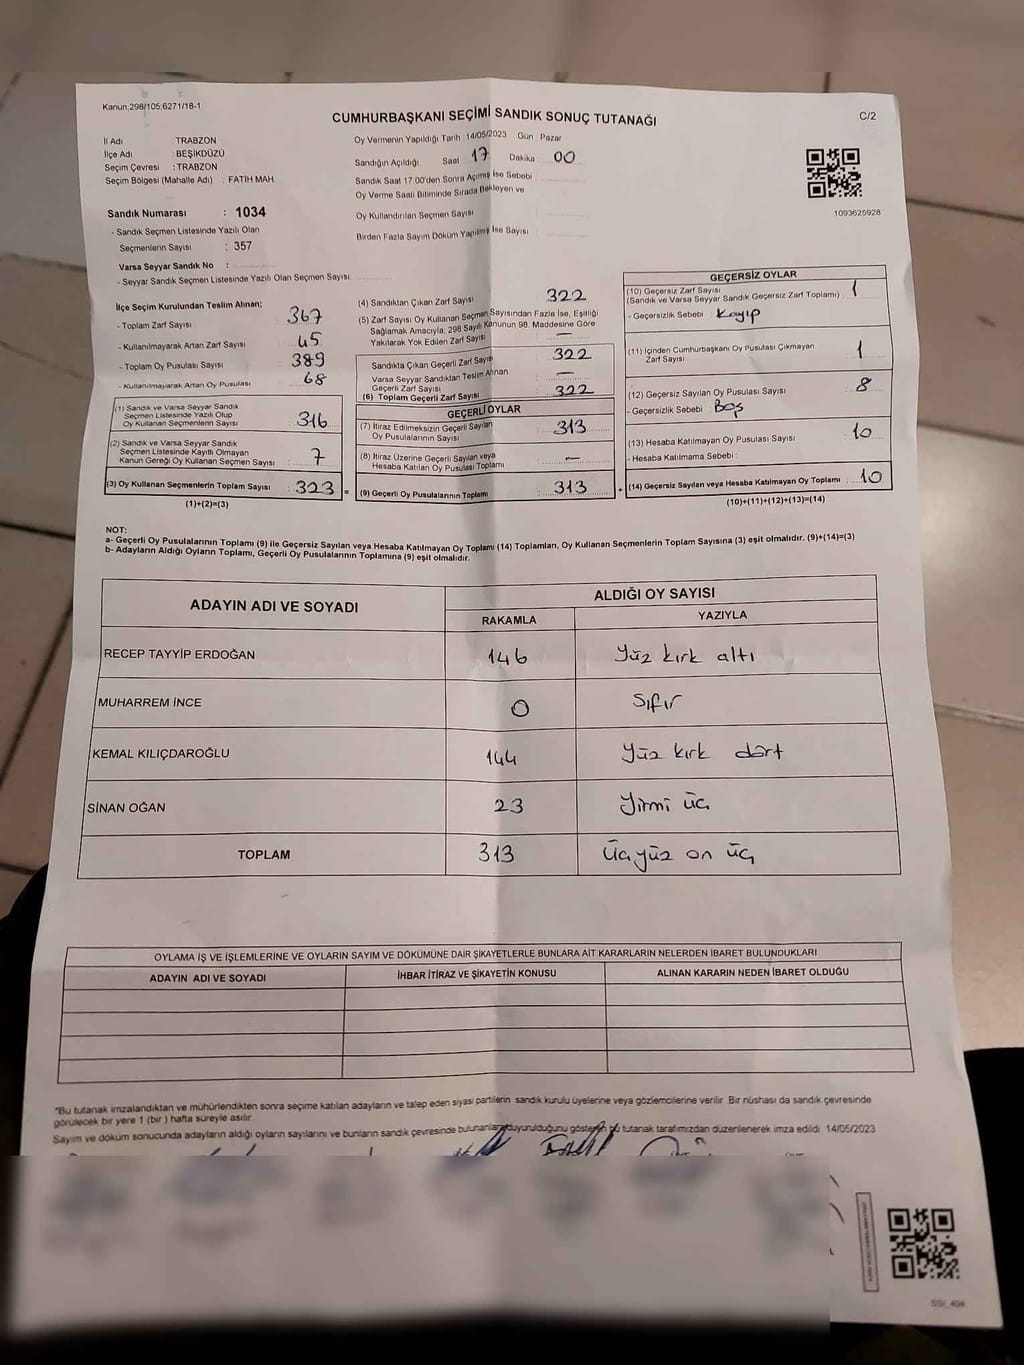 Kanun,298/105,6271/18-1
CUMHURBAŞKANI SEÇİMİ SANDIK SONUÇ TUTANAĞI
C/2
İl Adı : TRABZON
İlçe Adı : BEŞİKDÜZÜ
Seçim Çevresi : TRABZON
Seçim Bölgesi (Mahalle Adı) : FATİH MAH.
Oy Vermenin Yapıldığı Tarih :14/05/2023 Gün : Pazar
Sandığın Açıldığı Saat 17 Dakika 00
Sandık Saat 17:00'den Sonra Açımış İse Sebebi
Oy Verme Saati Bitiminde Sırada Bekleyen ve
Oy Kullandırılan Seçmen Sayısı :
Birden Fazla Sayım Döküm Yapılmış İse Sayısı :
1093625928
Sandık Numarası : 1034
- Sandık Seçmen Listesinde Yazılı Olan
Seçmenlerin Sayısı : 357
Varsa Seyyar Sandık No :
- Seyyar Sandık Seçmen Listesinde Yazılı Olan Seçmen Sayısı
İlçe Seçim Kurulundan Teslim Alınan;
- Toplam Zarf Sayısı : 367
- Kullanılmayarak Artan Zarf Sayısı : 45
- Toplam Oy Pusulası Sayısı : 389
- Kullanılmayarak Artan Oy Pusulası : 68
(1) Sandık ve Varsa Seyyar Sandık
Seçmen Listesinde Yazılı Olup
Oy Kullanan Seçmenlerin Sayısı : 316
(2) Sandık ve Varsa Seyyar Sandık
Seçmen Listesinde Kayıtlı Olmayan
Kanun Gereği Oy Kullanan Seçmen Sayısı : 7
(3) Oy Kullanan Seçmenlerin Toplam Sayısı : 323 =
(1)+(2)=(3)
(4) Sandıktan Çıkan Zarf Sayısı : 322
(5) Zarf Sayısı Oy Kullanan Seçmen Sayısından Fazla İse, Eşitliği
Sağlamak Amacıyla; 298 Sayılı Kanunun 98. Maddesine Göre
Yakılarak Yok Edilen Zarf Sayısı : —
Sandıkta Çıkan Geçerli Zarf Sayısı : 322
Varsa Seyyar Sandıktan Teslim Alınan
Geçerli Zarf Sayısı : —
(6) Toplam Geçerli Zarf Sayısı : 322
GEÇERLİ OYLAR
(7) İtiraz Edilmeksizin Geçerli Sayılan
Oy Pusulalarının Sayısı : 313
(8) İtiraz Üzerine Geçerli Sayılan veya
Hesaba Katılan Oy Pusulası Toplamı : —
(9) Geçerli Oy Pusulalarının Toplamı : 313 +
GEÇERSİZ OYLAR
(10) Geçersiz Zarf Sayısı : 1
(Sandık ve Varsa Seyyar Sandık Geçersiz Zarf Toplamı)
- Geçersizlik Sebebi : Kayıp
(11) İçinden Cumhurbaşkanı Oy Pusulası Çıkmayan
Zarf Sayısı : 1
(12) Geçersiz Sayılan Oy Pusulası Sayısı : 8
- Geçersizlik Sebebi : Boş
(13) Hesaba Katılmayan Oy Pusulası Sayısı : 10
- Hesaba Katılmama Sebebi :
(14) Geçersiz Sayılan veya Hesaba Katılmayan Oy Toplamı : 10
(10)+(11)+(12)+(13)=(14)
NOT:
a- Geçerli Oy Pusulalarının Toplamı (9) ile Geçersiz Sayılan veya Hesaba Katılmayan Oy Toplamı (14) Toplamları, Oy Kullanan Seçmenlerin Toplam Sayısına (3) eşit olmalıdır. (9)+(14)=(3)
b- Adayların Aldığı Oyların Toplamı, Geçerli Oy Pusulalarının Toplamına (9) eşit olmalıdır.
ADAYIN ADI VE SOYADI
ALDIĞI OY SAYISI
RAKAMLA YAZIYLA
RECEP TAYYİP ERDOĞAN 146 Yüz kırk altı
MUHARREM İNCE 0 Sıfır
KEMAL KILIÇDAROĞLU 144 Yüz kırk dört
SİNAN OĞAN 23 Yirmi üç
TOPLAM 313 Üçyüz on üç
OYLAMA İŞ VE İŞLEMLERİNE VE OYLARIN SAYIM VE DÖKÜMÜNE DAİR ŞİKAYETLERLE BUNLARA AİT KARARLARIN NELERDEN İBARET BULUNDUKLARI
ADAYIN ADI VE SOYADI İHBAR İTİRAZ VE ŞİKAYETİN KONUSU ALINAN KARARIN NEDEN İBARET OLDUĞU
*Bu tutanak imzalandıktan ve mühürlendikten sonra seçime katılan adayların ve talep eden siyasi partilerin sandık kurulu üyelerine veya gözlemcilerine verilir. Bir nüshası da sandık çevresinde
görülecek bir yere 1 (bir ) hafta süreyle asılır.
Sayım ve döküm sonucunda adayların aldığı oyların sayılarını ve bunların sandık çevresinde bulunanlara duyurulduğunu gösteren bu tutanak tarafımızdan düzenlenerek imza edildi. 14/05/2023